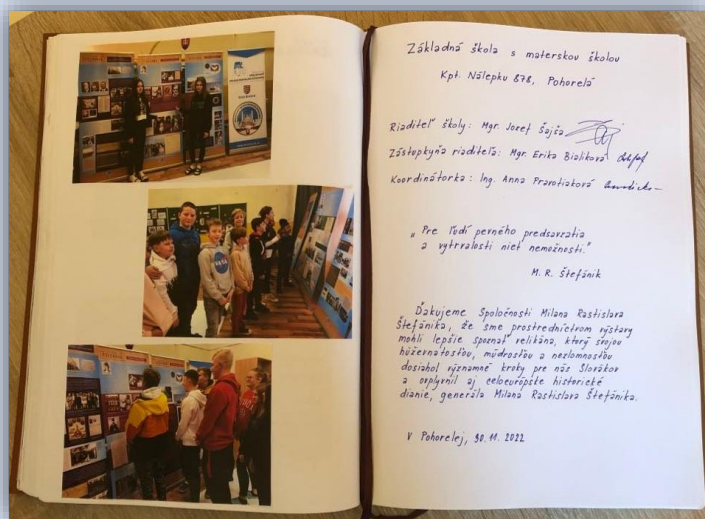 Základná škola s materskou školou
Kpt. Nálepku 878, Pohorelá
Riaditeľ školy: Mgr. Jozef Šajša
Zástupkyňa riaditeľa: Mgr. Erika Bialiková
Koordinátorka: Ing. Anna Pravotiaková
„Pre ľudí pevného predsavzatia
a vytrvalosti niet nemožnosti."
M. R. Štefánik
Ďakujeme Spoločnosti Milana Rastislava
Štefánika, že sme prostredníctvom výstavy
mohli lepšie spoznať velikána, ktorý svojou
húževnatosťou, múdrosťou a nezlomnosťou
dosiahol významné kroky pre nás Slovákov
a ovplyvnil aj celoeurópske historické
dianie, generála Milana Rastislava Štefánika.
V Pohorelej, 30.11.2022